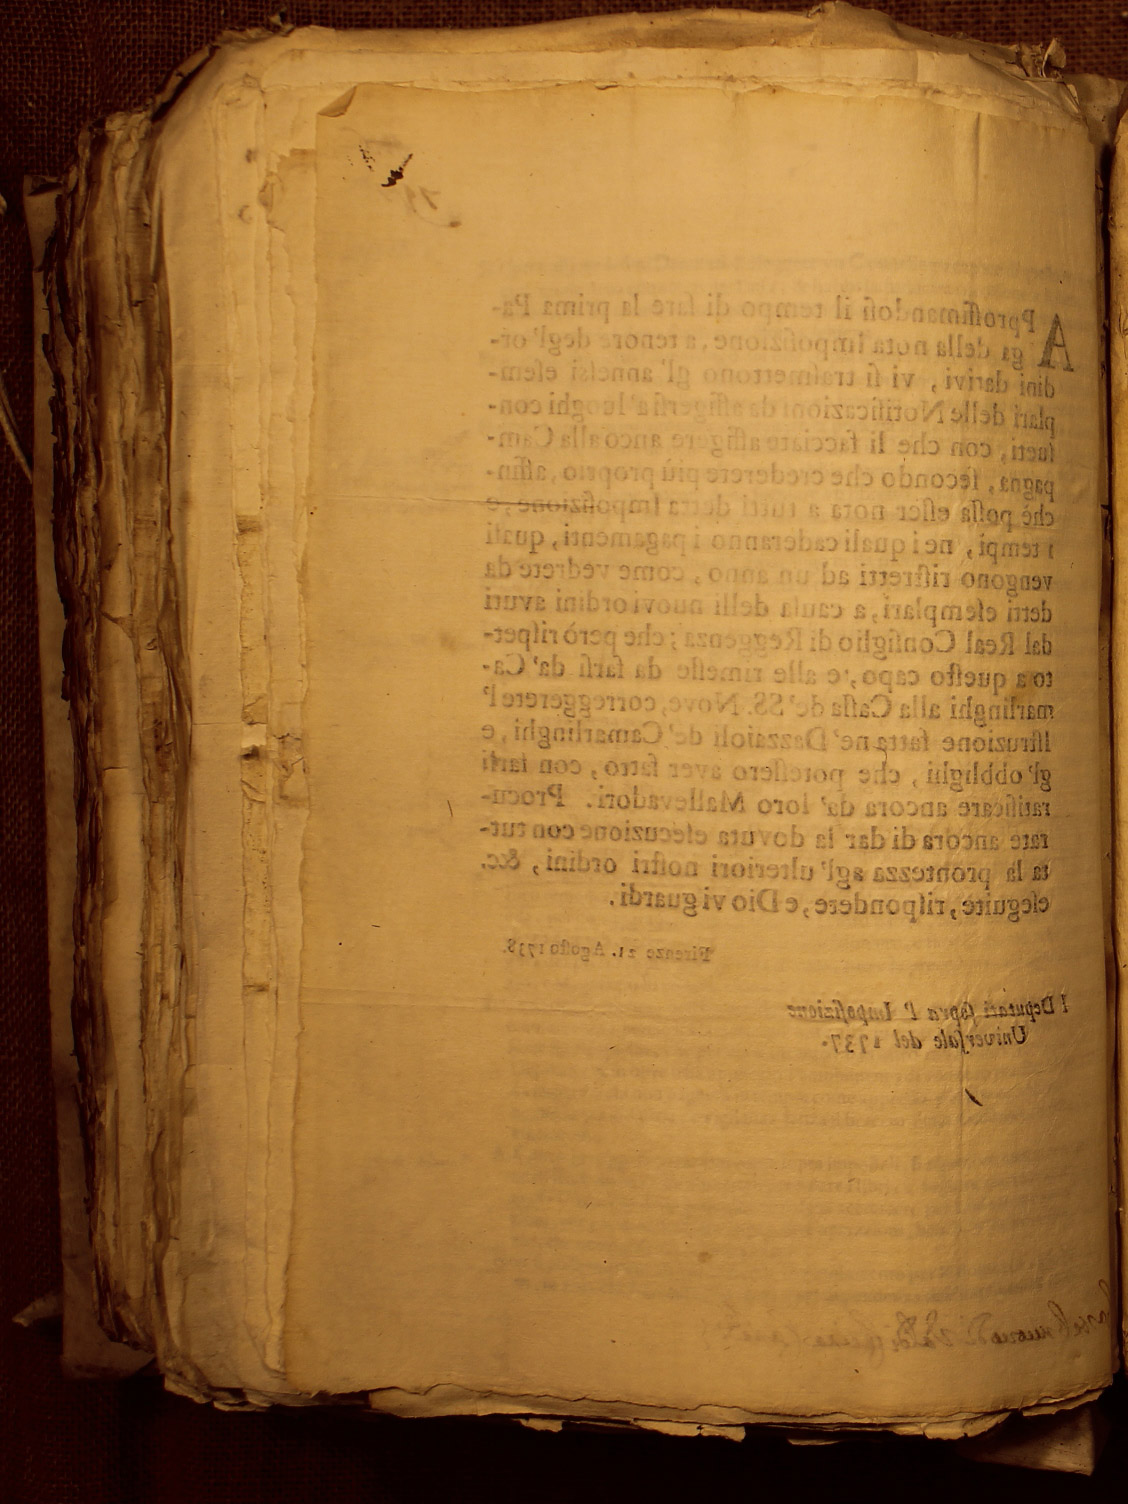 APprossimandosi il tempo di fare la prima Pa-
ga della nota Imposizione, a tenore degl'or-
dini dativi, vi si trasmettono gl' annessi esem-
plari delle Notificazioni da affigersi a' luoghi con-
sueti, con che li facciate affigere anco alla Cam-
pagna, secondo che crederete più proprio, affin-
chè possa esser nota a tutti detta Imposizione, e
i tempi, nei quali caderanno i pagamenti, quali
vengono ristretti ad un anno, come vedrete da
detti esemplari, a causa delli nuovi ordini avuti
dal Real Consiglio di Reggenza; che però rispet-
to a questo capo, e alle rimesse da farsi da' Ca-
marlinghi alla Cassa de' SS. Nove, correggerete l'
Istruzione fatta ne' Dazzaioli de' Camarlinghi, e
gl'obblighi, che potessero aver fatto, con farli
ratificare ancora da' loro Mallevadori. Procu-
rate ancora di dar la dovuta esecuzione con tut-
ta la prontezza agl'ulteriori nostri ordini, &c.
eseguite, rispondete, e Dio vi guardi.
Firenze 21. Agosto 1738.
I Deputati sopra l' Imposizione
Universale del 1737.